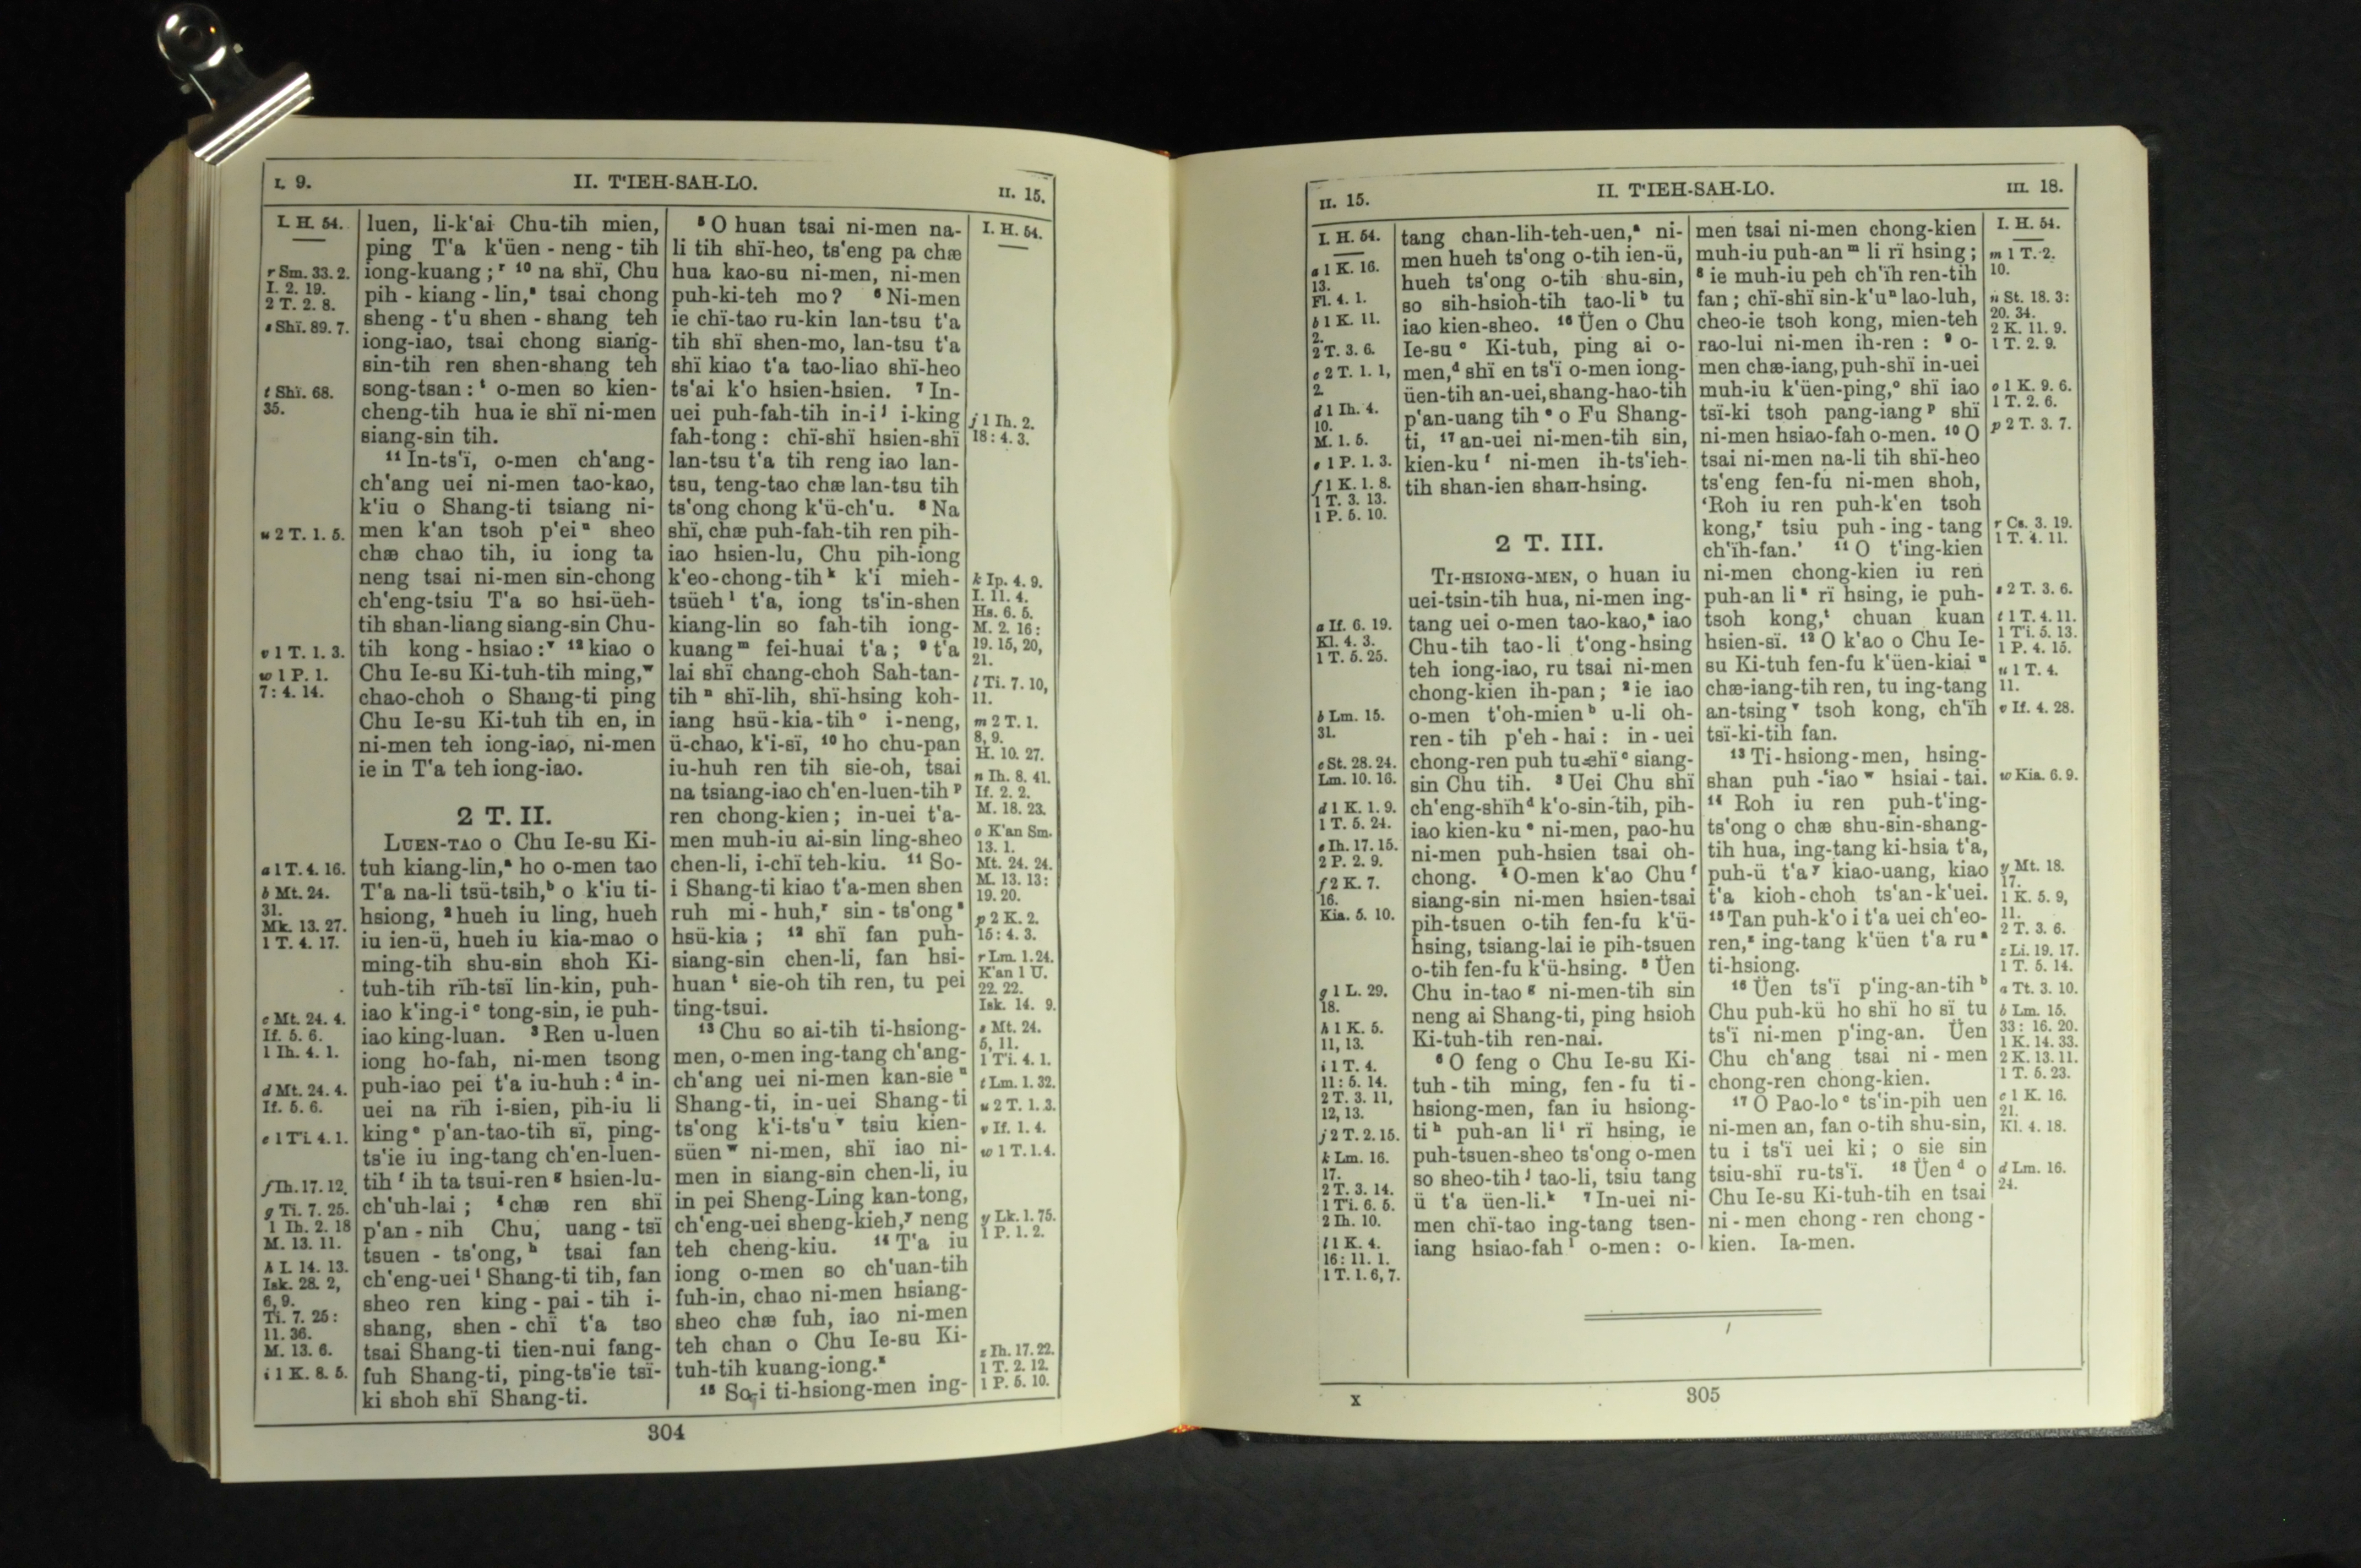 I. 9.
II. T'IEH-SAH-LO.
II. 15.
I. H. 54.
r Sm. 33. 2.
I. 2. 19.
2 T. 2. 8.
s Shï. 89. 7.
t Shï. 68.
35.
u 2 T. 1. 5.
v 1 T. 1. 3.
w 1 P. 1.
7: 4. 14.
a 1 T. 4. 16.
b Mt. 24.
31.
Mk. 13. 27.
1 T. 4. 17.
c Mt. 24. 4.
If. 5. 6.
1 Ih. 4. 1.
d Mt. 24. 4.
If. 5. 6.
e 1 T'i. 4. 1.
f Ih. 17. 12.
g Ti. 7. 25.
1 Ih. 2. 18
M. 13. 11.
h I. 14. 13.
Isk. 28. 2,
6, 9.
Ti. 7. 25:
11. 36.
M. 13. 6.
i 1 K. 8. 5.
luen, li-k'ai Chu-tih mien,
ping T'a k'üen-neng-tih
iong-kuang; ʳ ¹⁰ na shï, Chu
pih-kiang-lin,ˢ tsai chong
sheng-t'u shen-shang teh
iong-iao, tsai chong siang-
sin-tih ren shen-shang teh
song-tsan: ᵗ o-men so kien-
cheng-tih hua ie shï ni-men
siang-sin tih.
¹¹ In-ts'ï, o-men ch'ang-
ch'ang uei ni-men tao-kao,
k'iu o Shang-ti tsiang ni-
men k'an tsoh p'ei ᵘ sheo
chæ chao tih, iu iong ta
neng tsai ni-men sin-chong
ch'eng-tsiu T'a so hsi-üeh-
tih shan-liang siang-sin Chu-
tih kong-hsiao: ᵛ ¹² kiao o
Chu Ie-su Ki-tuh-tih ming,ʷ
chao-choh o Shang-ti ping
Chu Ie-su Ki-tuh tih en, in
ni-men teh iong-iao, ni-men
ie in T'a teh iong-iao.
2 T. II.
LUEN-TAO o Chu Ie-su Ki-
tuh kiang-lin,ᵃ ho o-men tao
T'a na-li tsü-tsih,ᵇ o k'iu ti-
hsiong, ² hueh iu ling, hueh
iu ien-ü, hueh iu kia-mao o
ming-tih shu-sin shoh Ki-
tuh-tih rïh-tsï lin-kin, puh-
iao k'ing-i ᶜ tong-sin, ie puh-
iao king-luan. ³ Ren u-luen
iong ho-fah, ni-men tsong
puh-iao pei t'a iu-huh: ᵈ in-
uei na rïh i-sien, pih-iu li
king ᵉ p'an-tao-tih sï, ping-
ts'ie iu ing-tang ch'en-luen-
tih ᶠ ih ta tsui-ren ᵍ hsien-lu-
ch'uh-lai; ⁴ chæ ren shï
p'an-nih Chu, uang-tsï
tsuen-ts'ong, ʰ tsai fan
ch'eng-uei ⁱ Shang-ti tih, fan
sheo ren king-pai-tih i-
shang, shen-chï t'a tso
tsai Shang-ti tien-nui fang-
fuh Shang-ti, ping-ts'ie tsï-
ki shoh shï Shang-ti.
⁵ O huan tsai ni-men na-
li tih shï-heo, ts'eng pa chæ
hua kao-su ni-men, ni-men
puh-ki-teh mo? ⁶ Ni-men
ie chï-tao ru-kin lan-tsu t'a
tih shï shen-mo, lan-tsu t'a
shï kiao t'a tao-liao shï-heo
ts'ai k'o hsien-hsien. ⁷ In-
uei puh-fah-tih in-i ʲ i-king
fah-tong: chï-shï hsien-shï
lan-tsu t'a tih reng iao lan-
tsu, teng-tao chæ lan-tsu tih
ts'ong chong k'ü-ch'u. ⁸ Na
shï, chæ puh-fah-tih ren pih-
iao hsien-lu, Chu pih-iong
k'eo-chong-tih ᵏ k'i mieh-
tsüeh ˡ t'a, iong ts'in-shen
kiang-lin so fah-tih iong-
kuang ᵐ fei-huai t'a; ⁹ t'a
lai shï chang-choh Sah-tan-
tih ⁿ shï-lih, shï-hsing koh-
iang hsü-kia-tih ᵒ i-neng,
ü-chao, k'i-sï, ¹⁰ ho chu-pan
iu-huh ren tih sie-oh, tsai
na tsiang-iao ch'en-luen-tih ᵖ
ren chong-kien; in-uei t'a-
men muh-iu ai-sin ling-sheo
chen-li, i-chï teh-kiu. ¹¹ So-
i Shang-ti kiao t'a-men shen
ruh mi-huh,ʳ sin-ts'ong ˢ
hsü-kia; ¹² shï fan puh-
siang-sin chen-li, fan hsi-
huan ᵗ sie-oh tih ren, tu pei
ting-tsui.
¹³ Chu so ai-tih ti-hsiong-
men, o-men ing-tang ch'ang-
ch'ang uei ni-men kan-sie ᵘ
Shang-ti, in-uei Shang-ti
ts'ong k'i-ts'u ᵛ tsiu kien-
süen ʷ ni-men, shï iao ni-
men in siang-sin chen-li, iu
in pei Sheng-Ling kan-tong,
ch'eng-uei sheng-kieh,ʸ neng
teh cheng-kiu. ¹⁴ T'a iu
iong o-men so ch'uan-tih
fuh-in, chao ni-men hsiang-
sheo chæ fuh, iao ni-men
teh chan o Chu Ie-su Ki-
tuh-tih kuang-iong.ᶻ
¹⁵ So-i ti-hsiong-men ing-
I. H. 54.
j 1 Ih. 2.
18: 4. 3.
k Ip. 4. 9.
I. 11. 4.
Hs. 6. 5.
M. 2. 16:
19. 15, 20,
21.
l Ti. 7. 10,
11.
m 2 T. 1.
8, 9.
H. 10. 27.
n Ih. 8. 41.
If. 2. 2.
M. 18. 23.
o K'an Sm.
13. 1.
Mt. 24. 24.
M. 13. 13:
19. 20.
p 2 K. 2.
15: 4. 3.
r Lm. 1. 24.
K'an 1 U.
22. 22.
Isk. 14. 9.
s Mt. 24.
5, 11.
1 T'i. 4. 1.
t Lm. 1. 32.
u 2 T. 1. 3.
v If. 1. 4.
w 1 T. 1. 4.
y Lk. 1. 75.
1 P. 1. 2.
z Ih. 17. 22.
1 T. 2. 12.
1 P. 5. 10.
304
II. 15.
II. T'IEH-SAH-LO.
III. 18.
I. H. 54.
a 1 K. 16.
13.
Fl. 4. 1.
b 1 K. 11.
2.
2 T. 3. 6.
c 2 T. 1. 1,
2.
d 1 Ih. 4.
10.
M. 1. 5.
e 1 P. 1. 3.
f 1 K. 1. 8.
1 T. 3. 13.
1 P. 5. 10.
a If. 6. 19.
Kl. 4. 3.
1 T. 5. 25.
b Lm. 15.
31.
c St. 28. 24.
Lm. 10. 16.
d 1 K. 1. 9.
1 T. 5. 24.
e Ih. 17. 15.
2 P. 2. 9.
f 2 K. 7.
16.
Kia. 5. 10.
g 1 L. 29.
18.
h 1 K. 5.
11, 13.
i 1 T. 4.
11: 5. 14.
2 T. 3. 11,
12, 13.
j 2 T. 2. 15.
k Lm. 16.
17.
2 T. 3. 14.
1 Ti. 6. 5.
2 Ih. 10.
l 1 K. 4.
16: 11. 1.
1 T. 1. 6, 7.
tang chan-lih-teh-uen,ᵃ ni-
men hueh ts'ong o-tih ien-ü,
hueh ts'ong o-tih shu-sin,
so sih-hsioh-tih tao-li ᵇ tu
iao kien-sheo. ¹⁶ Üen o Chu
Ie-su ᶜ Ki-tuh, ping ai o-
men,ᵈ shï en ts'ï o-men iong-
üen-tih an-uei, shang-hao-tih
p'an-uang tih ᵉ o Fu Shang-
ti, ¹⁷ an-uei ni-men-tih sin,
kien-ku ᶠ ni-men ih-ts'ieh-
tih shan-ien shan-hsing.
2 T. III.
TI-HSIONG-MEN, o huan iu
uei-tsin-tih hua, ni-men ing-
tang uei o-men tao-kao,ᵃ iao
Chu-tih tao-li t'ong-hsing
teh iong-iao, ru tsai ni-men
chong-kien ih-pan; ² ie iao
o-men t'oh-mien ᵇ u-li oh-
ren-tih p'eh-hai: in-uei
chong-ren puh tu-shï ᶜ siang-
sin Chu tih. ³ Uei Chu shï
ch'eng-shïh ᵈ k'o-sin-tih, pih-
iao kien-ku ᵉ ni-men, pao-hu
ni-men puh-hsien tsai oh-
chong. ⁴ O-men k'ao Chu ᶠ
siang-sin ni-men hsien-tsai
pih-tsuen o-tih fen-fu k'ü-
hsing, tsiang-lai ie pih-tsuen
o-tih fen-fu k'ü-hsing. ⁵ Üen
Chu in-tao ᵍ ni-men-tih sin
neng ai Shang-ti, ping hsioh
Ki-tuh-tih ren-nai.
⁶ O feng o Chu Ie-su Ki-
tuh-tih ming, fen-fu ti-
hsiong-men, fan iu hsiong-
ti ʰ puh-an li ⁱ rï hsing, ie
puh-tsuen-sheo ts'ong o-men
so sheo-tih ʲ tao-li, tsiu tang
ü t'a üen-li.ᵏ ⁷ In-uei ni-
men chï-tao ing-tang tsen-
iang hsiao-fah ˡ o-men: o-
men tsai ni-men chong-kien
muh-iu puh-an ᵐ li rï hsing;
⁸ ie muh-iu peh ch'ïh ren-tih
fan; chï-shï sin-k'u ⁿ lao-luh,
cheo-ie tsoh kong, mien-teh
rao-lui ni-men ih-ren: ⁹ o-
men chæ-iang, puh-shï in-uei
muh-iu k'üen-ping,ᵒ shï iao
tsï-ki tsoh pang-iang ᵖ shï
ni-men hsiao-fah o-men. ¹⁰ O
tsai ni-men na-li tih shï-heo
ts'eng fen-fu ni-men shoh,
‘Roh iu ren puh-k'en tsoh
kong,ʳ tsiu puh-ing-tang
ch'ïh-fan.’ ¹¹ O t'ing-kien
ni-men chong-kien iu ren
puh-an li ˢ rï hsing, ie puh-
tsoh kong,ᵗ chuan kuan
hsien-sï. ¹² O k'ao o Chu Ie-
su Ki-tuh fen-fu k'üen-kiai ᵘ
chæ-iang-tih ren, tu ing-tang
an-tsing ᵛ tsoh kong, ch'ïh
tsï-ki-tih fan.
¹³ Ti-hsiong-men, hsing-
shan puh-iao ʷ hsiai-tai.
¹⁴ Roh iu ren puh-t'ing-
ts'ong o chæ shu-sin-shang-
tih hua, ing-tang ki-hsia t'a,
puh-ü t'a ʸ kiao-uang, kiao
t'a kioh-choh ts'an-k'uei.
¹⁵ Tan puh-k'o i t'a uei ch'eo-
ren,ᶻ ing-tang k'üen t'a ru ᵃ
ti-hsiong.
¹⁶ Üen ts'ï p'ing-an-tih ᵇ
Chu puh-kü ho shï ho sï tu
ts'ï ni-men p'ing-an. Üen
Chu ch'ang tsai ni-men
chong-ren chong-kien.
¹⁷ O Pao-lo ᶜ ts'in-pih uen
ni-men an, fan o-tih shu-sin,
tu i ts'ï uei ki; o sie sin
tsiu-shï ru-ts'ï. ¹⁸ Üen ᵈ o
Chu Ie-su Ki-tuh-tih en tsai
ni-men chong-ren chong-
kien. Ia-men.
I. H. 54.
m 1 T. 2.
10.
n St. 18. 3:
20. 34.
2 K. 11. 9.
1 T. 2. 9.
o 1 K. 9. 6.
1 T. 2. 6.
p 2 T. 3. 7.
r Cs. 3. 19.
1 T. 4. 11.
s 2 T. 3. 6.
t 1 T. 4. 11.
1 T'i. 5. 13.
1 P. 4. 15.
u 1 T. 4.
11.
v If. 4. 28.
w Kia. 6. 9.
y Mt. 18.
17.
1 K. 5. 9,
11.
2 T. 3. 6.
z Li. 19. 17.
1 T. 5. 14.
a Tt. 3. 10.
b Lm. 15.
33: 16. 20.
1 K. 14. 33.
2 K. 13. 11.
1 T. 5. 23.
c 1 K. 16.
21.
Kl. 4. 18.
d Lm. 16.
24.
X
305